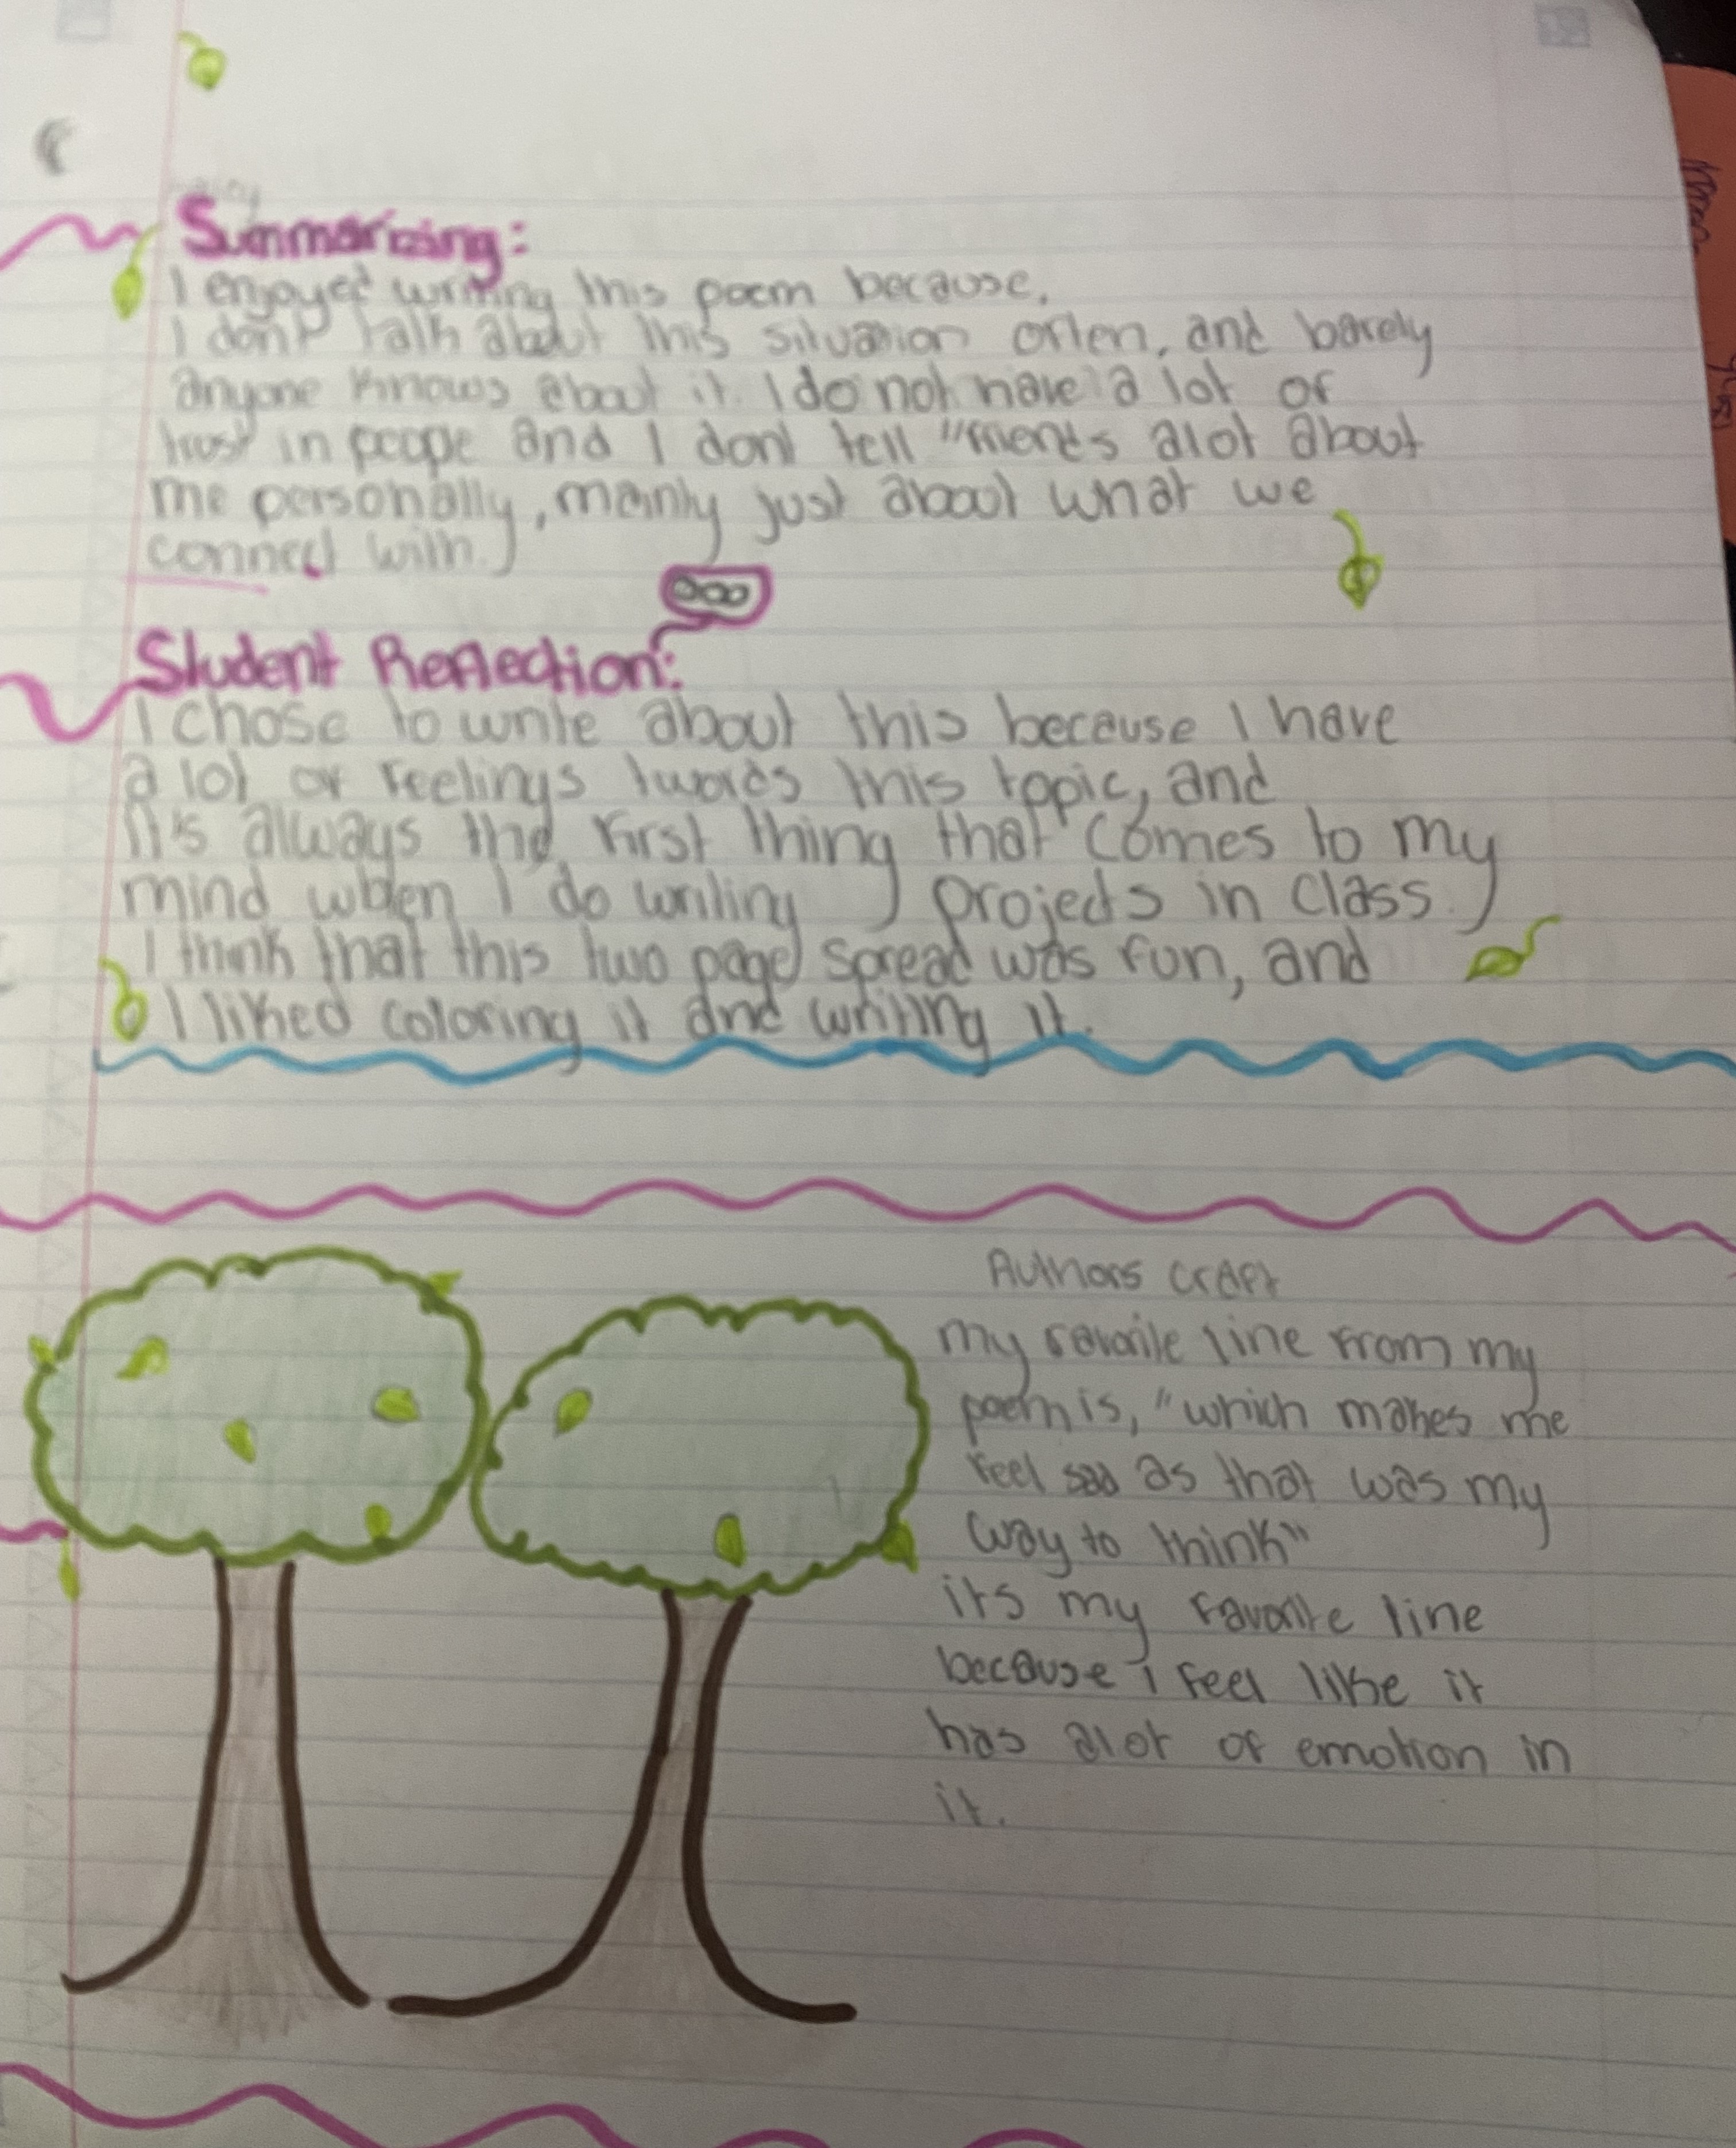 Summarizing:
I enjoyed writing this poem because,
I don't talk about this situation often, and barely
anyone knows about it. I do not have a lot of
trust in peope and I dont tell "friends alot about
me personally, mainly just about what we
connect with.
Student Reflection:
I chose to write about this because I have
a lot of feelings twords this topic, and
It's always the first thing that comes to my
mind when I do writing projects in class.
I think that this two page spread was fun, and
I liked coloring it and writing it.
Authors craft
my favorite line from my
poem is, "which makes me
feel sad as that was my
way to think"
its my favorite line
because i feel like it
has alot of emotion in
it.